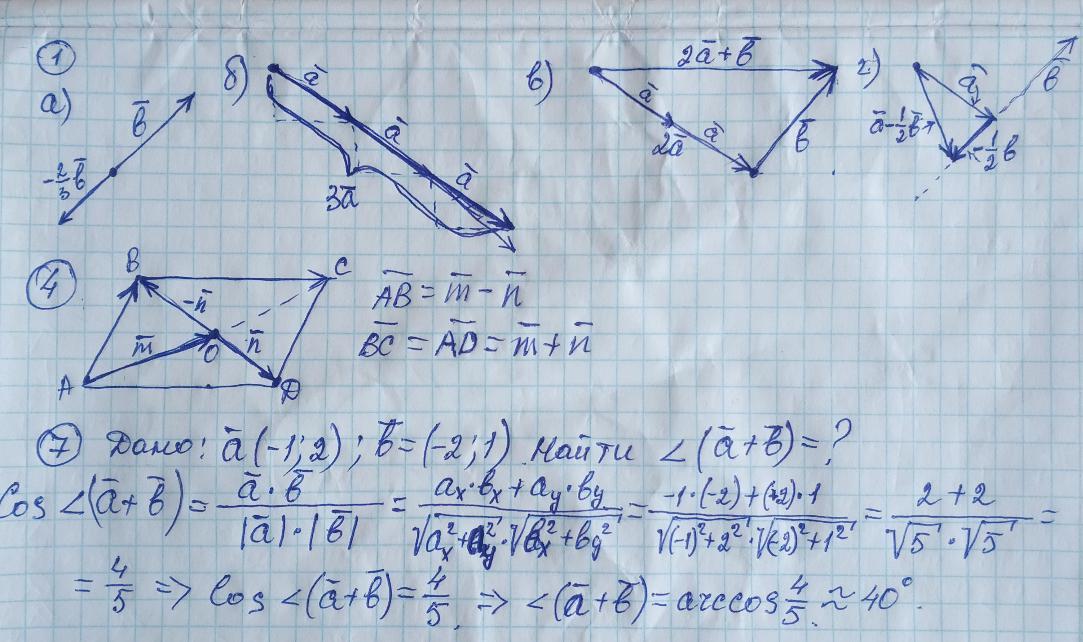 ①
а) b̄ -2/3 b̄
б) ā ā ā 3ā
в) 2ā+b̄ ā ā 2ā b̄
г) ā b̄ ā-1/2b̄ -1/2b
④ B C A D O m̄ -n̄ n̄
AB̄ = m̄ - n̄
BC̄ = AD̄ = m̄ + n̄
⑦ Дано: ā(-1; 2); b̄=(-2; 1) Найти ∠(ā+b̄)=?
Cos ∠(ā+b̄) = ā·b̄ / |ā|·|b̄| = aₓ·bₓ+aᵧ·bᵧ / √(aₓ²+aᵧ²)·√(bₓ²+bᵧ²) = -1·(-2)+(+2)·1 / √((-1)²+2²)·√((-2)²+1²) = 2+2 / √5·√5 =
= 4/5 => Cos ∠(ā+b̄) = 4/5 => ∠(ā+b̄) = arccos 4/5 ≈ 40°.